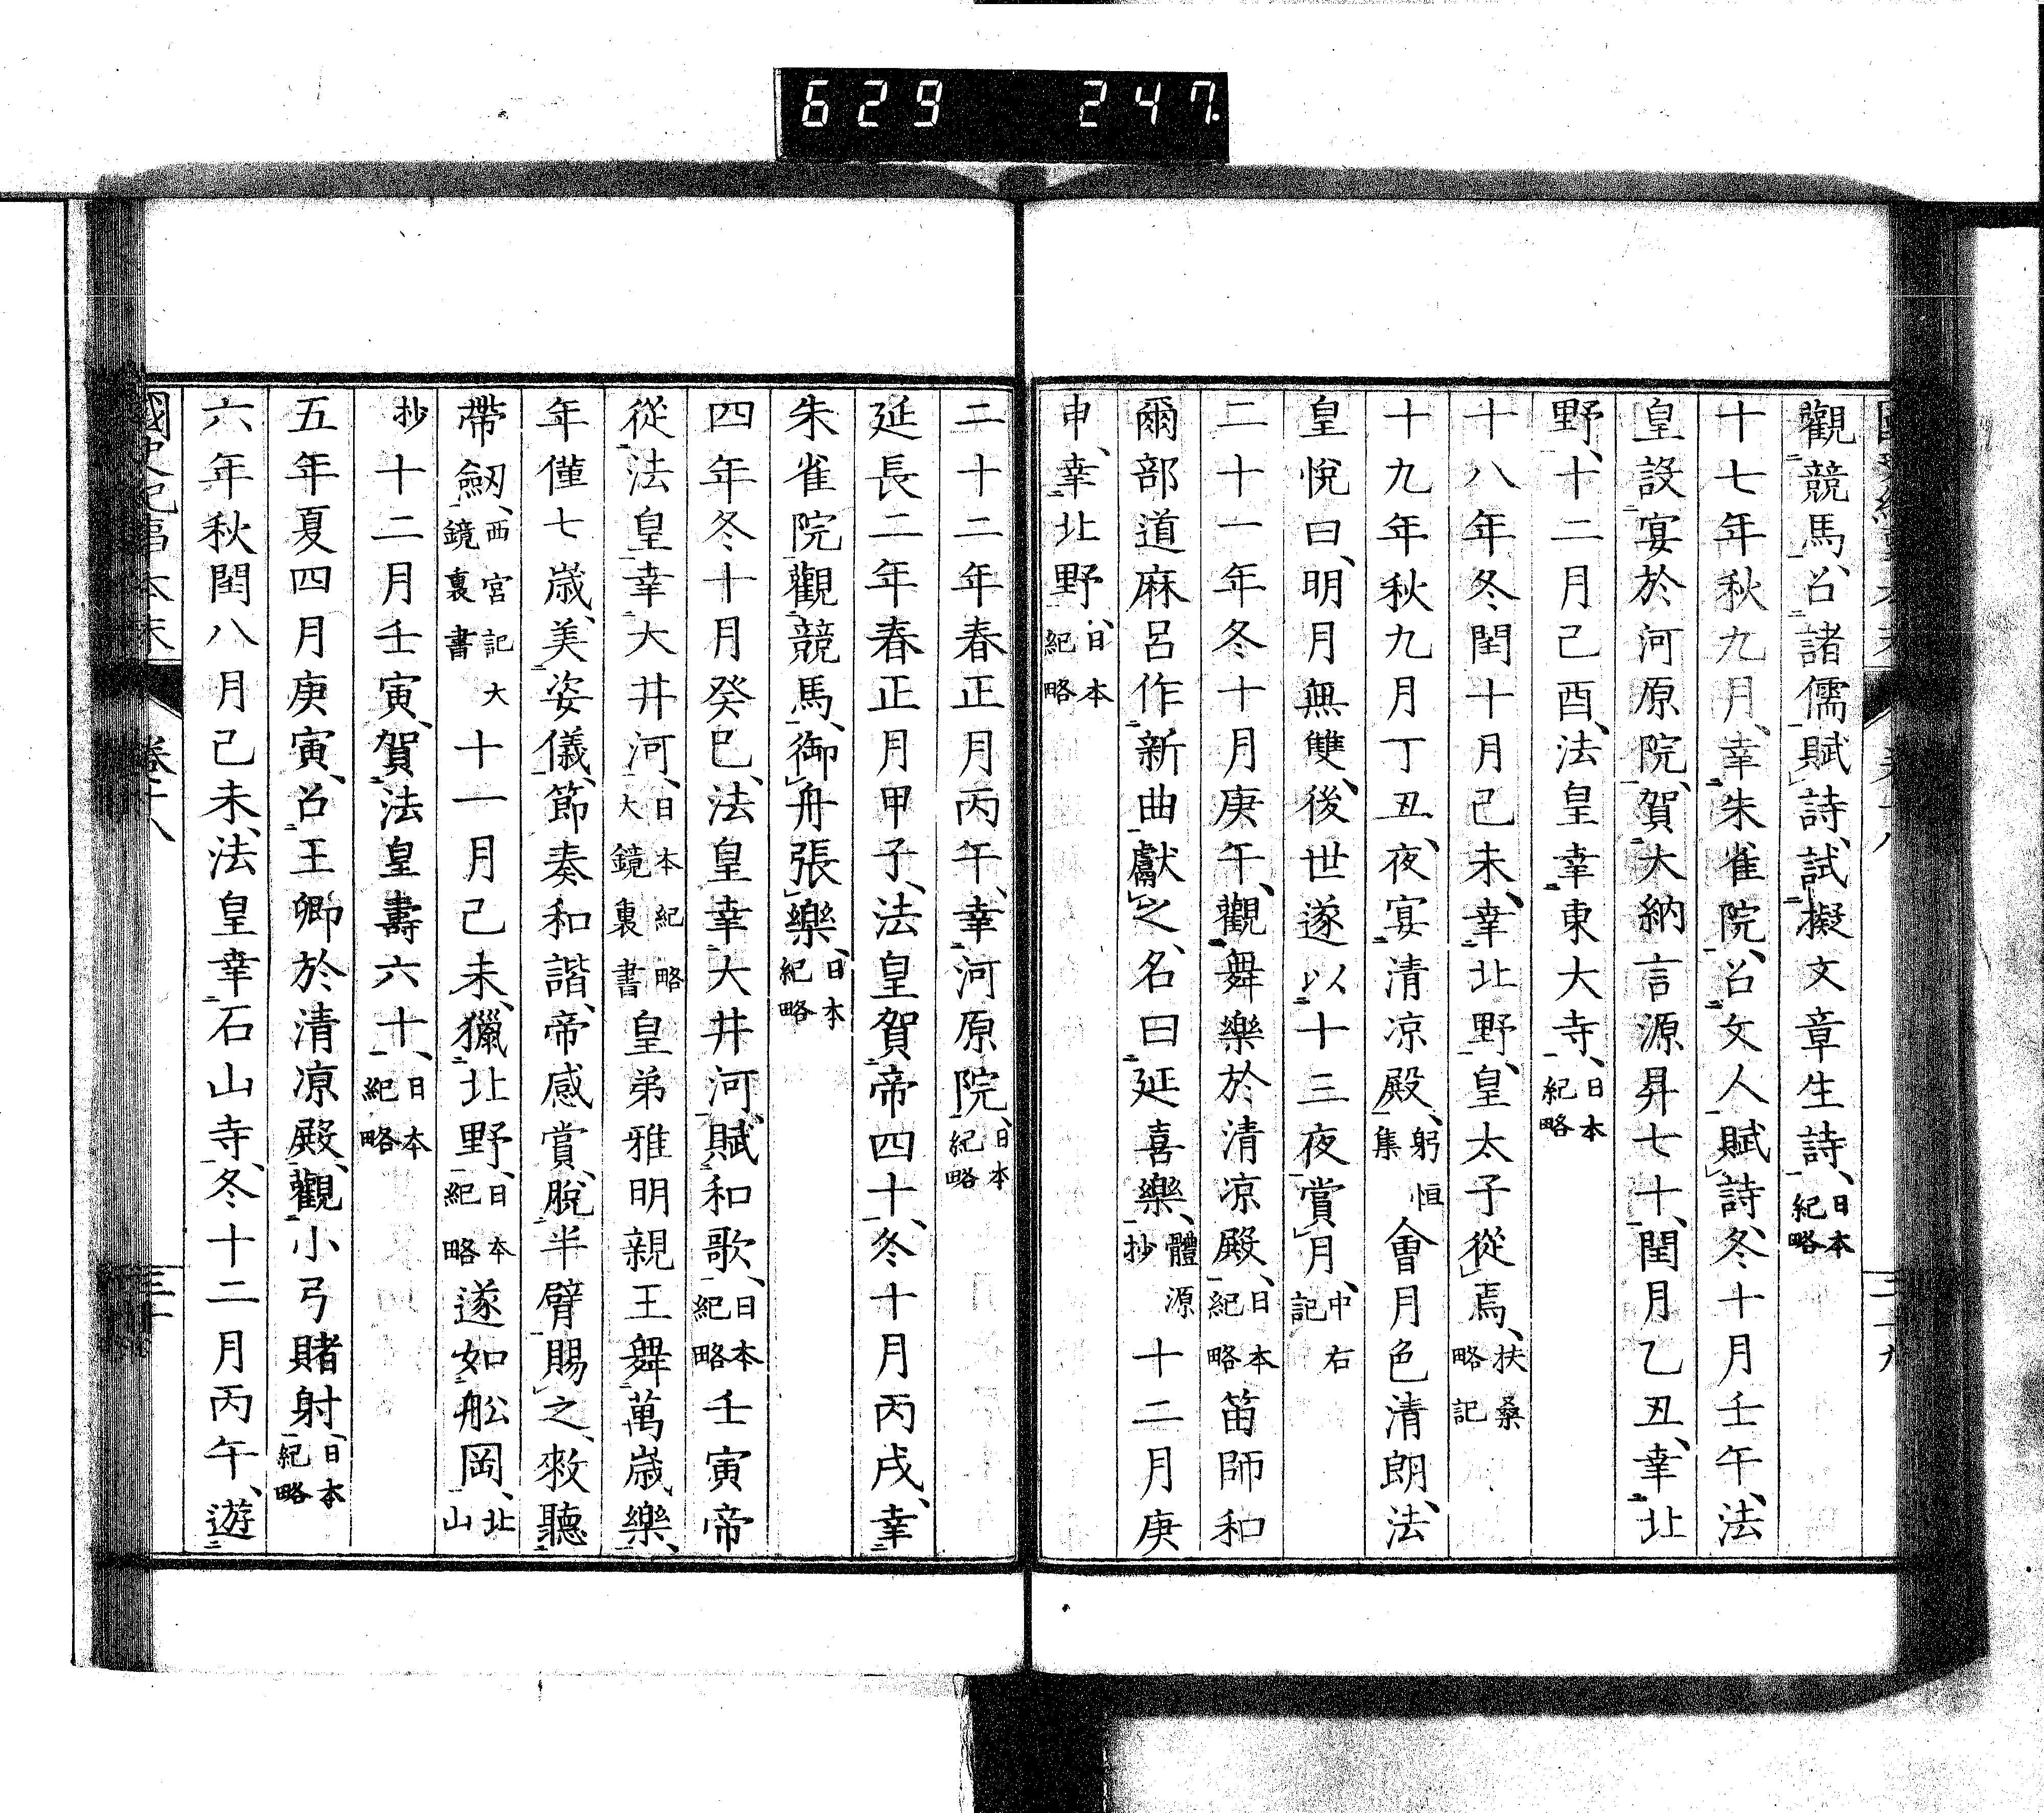 629 247.
觀競馬、召諸儒賦詩、試擬文章生詩、日本紀略
十七年秋九月、幸朱雀院、召文人賦詩、冬十月壬午、法
皇設宴於河原院、賀大納言源昇七十、閏月乙丑、幸北
野、十二月己酉、法皇幸東大寺、日本紀略
十八年冬閏十月己未、幸北野、皇太子從焉、扶桑略記
十九年秋九月丁丑、夜宴清凉殿、躬恒集會月色清朗、法
皇悅曰、明月無雙、後世遂以十三夜賞月、中右記
二十一年冬十月庚午、觀舞樂於清凉殿、日本紀略笛師和
爾部道麻呂作新曲獻之、名曰延喜樂、體源抄十二月庚
申、幸北野、日本紀略
二十二年春正月丙午、幸河原院、日本紀略
延長二年春正月甲子、法皇賀帝四十、冬十月丙戌、幸
朱雀院觀競馬、御舟張樂、日本紀略
四年冬十月癸巳、法皇幸大井河、賦和歌、日本紀略壬寅帝
從法皇幸大井河、日本紀略大鏡裏書皇弟雅明親王舞萬歲樂、
年僅七歲、美姿儀、節奏和諧、帝感賞、脫半臂賜之、敕聽
帶劒、西宮記大鏡裏書十一月己未、獵北野、日本紀略遂如舩岡、北山
抄十二月壬寅、賀法皇壽六十、日本紀略
五年夏四月庚寅、召王卿於清凉殿、觀小弓賭射、日本紀略
六年秋閏八月己未、法皇幸石山寺、冬十二月丙午、遊
國史紀事本末 卷十八 三十